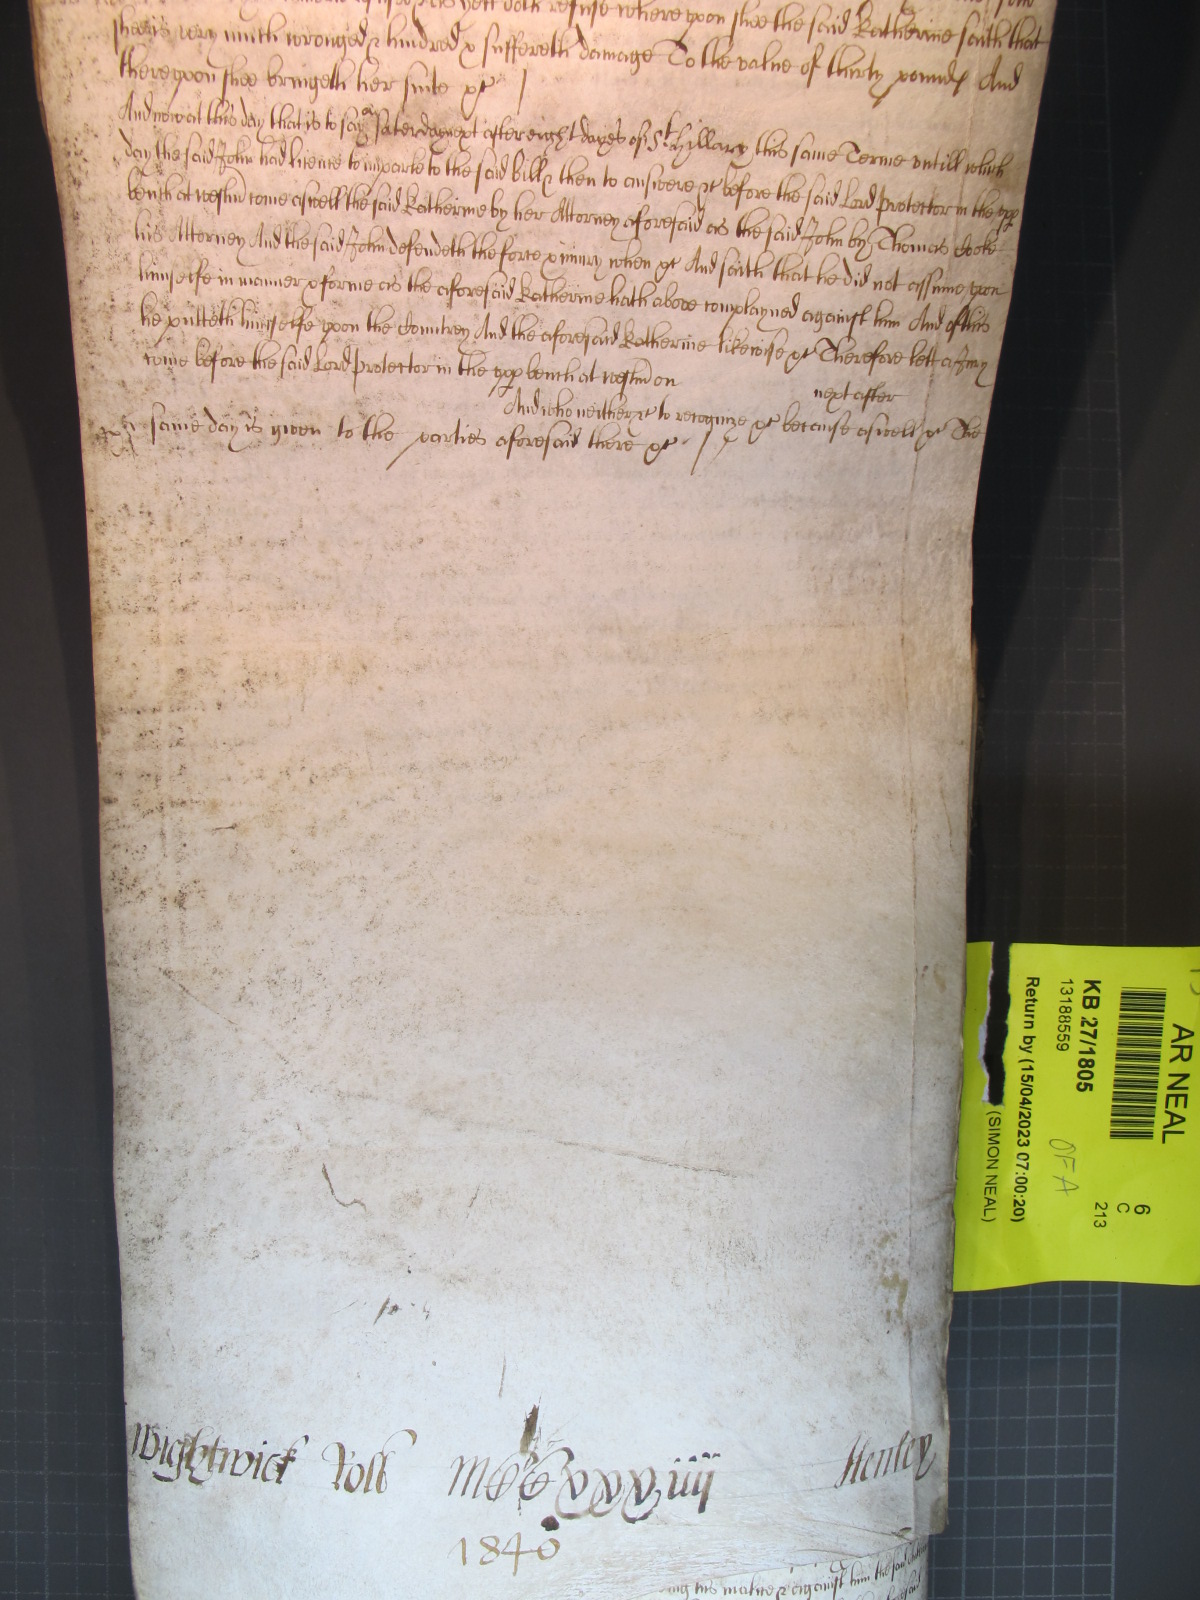 doth refuse where upon shee the said Katherine saith that
shee is very much wronged & hindred & suffereth damage To the value of thirty pounds And
thereupon shee bringeth her suite &c
And now at this day that is to say on Saterday next after eight dayes of St Hillary this same Terme untill which
day the said John had licence to imparle to the said bill & then to answere &c before the said Lord Protector in the upp
bench at westm come aswell the said Katherine by her Attorney aforesaid as the said John by Thomas Cooke
his Attorney And the said John defendeth the force & iniury when &c And saith that he did not assume upon
himselfe in manner & forme as the aforesaid Katherine hath above complayned against him And of this
he putteth himselfe upon the Countrey And the aforesaid Katherine likewise &c Therefore lett a Jury
come before the said Lord Protector in the upp bench at westm on
next after
And who neither &c to recognize &c because aswell &c The
same day is given to the parties aforesaid there &c
Wightwick Roll MCCxxxiiij Henley
1840
ing his malice & against him the said
AR NEAL
KB 27/1805
13188559
Return by (15/04/2023 07:00:20)
(SIMON NEAL)
OFA
6
C
213